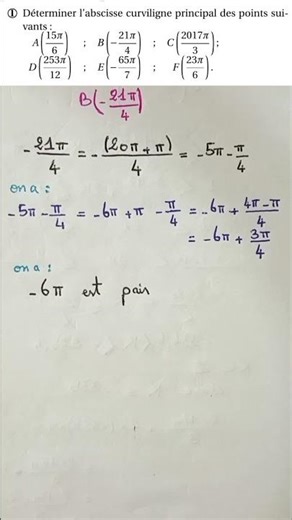 ① Déterminer l'abscisse curviligne principal des points sui-
vants :
A(15π/6) ; B(-21π/4) ; C(2017π/3);
D(253π/12) ; E(-65π/7) ; F(23π/6).
B(-21π/4)
-21π/4 = -(20π+π)/4 = -5π-π/4
on a :
-5π-π/4 = -6π+π-π/4 = -6π+(4π-π)/4
= -6π+3π/4
on a :
-6π est pair